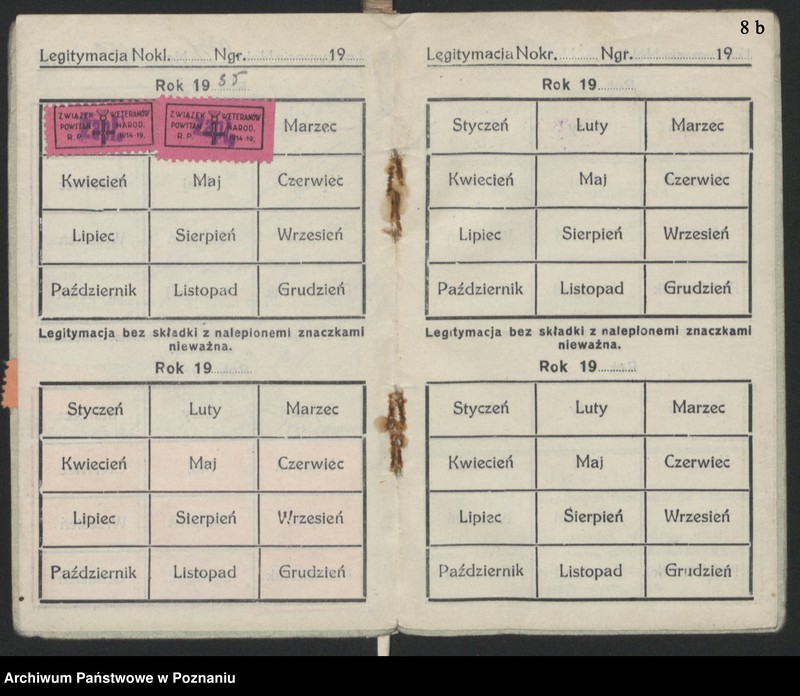 8 b
Legitymacja Nokl. Ngr. 19
Rok 19 35
ZWIĄZEK WETERANÓW
POWSTAŃ NAROD.
R. P. 1914-19.
ZWIĄZEK WETERANÓW
POWSTAŃ NAROD.
R. P. 1914-19.
Marzec
Kwiecień Maj Czerwiec
Lipiec Sierpień Wrzesień
Październik Listopad Grudzień
Legitymacja bez składki z nalepionemi znaczkami
nieważna.
Rok 19
Styczeń Luty Marzec
Kwiecień Maj Czerwiec
Lipiec Sierpień Wrzesień
Październik Listopad Grudzień
Legitymacja Nokr. Ngr. 19
Rok 19
Styczeń Luty Marzec
Kwiecień Maj Czerwiec
Lipiec Sierpień Wrzesień
Październik Listopad Grudzień
Legitymacja bez składki z nalepionemi znaczkami
nieważna.
Rok 19
Styczeń Luty Marzec
Kwiecień Maj Czerwiec
Lipiec Sierpień Wrzesień
Październik Listopad Grudzień
Archiwum Państwowe w Poznaniu